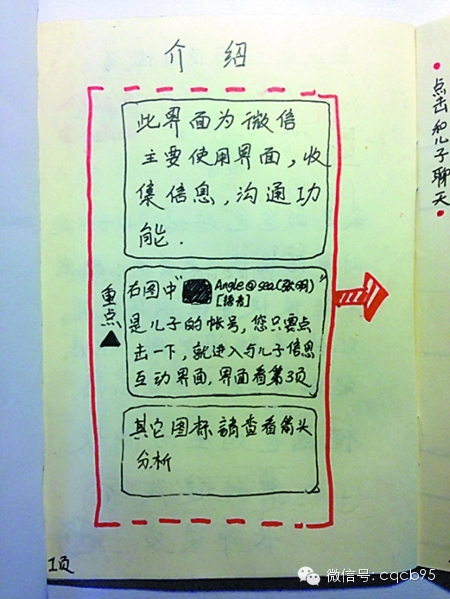 介绍
此界面为微信
主要使用界面，收
集信息，沟通功
能.
重点
右图中“ Angle@sea(张明)”
[语音]
是儿子的帐号，您只需点
击一下，就进入与儿子信息
互动界面，界面看第3页
其它图标请查看箭头
分析
1页
点击和儿子聊天
微信号: cqcb95